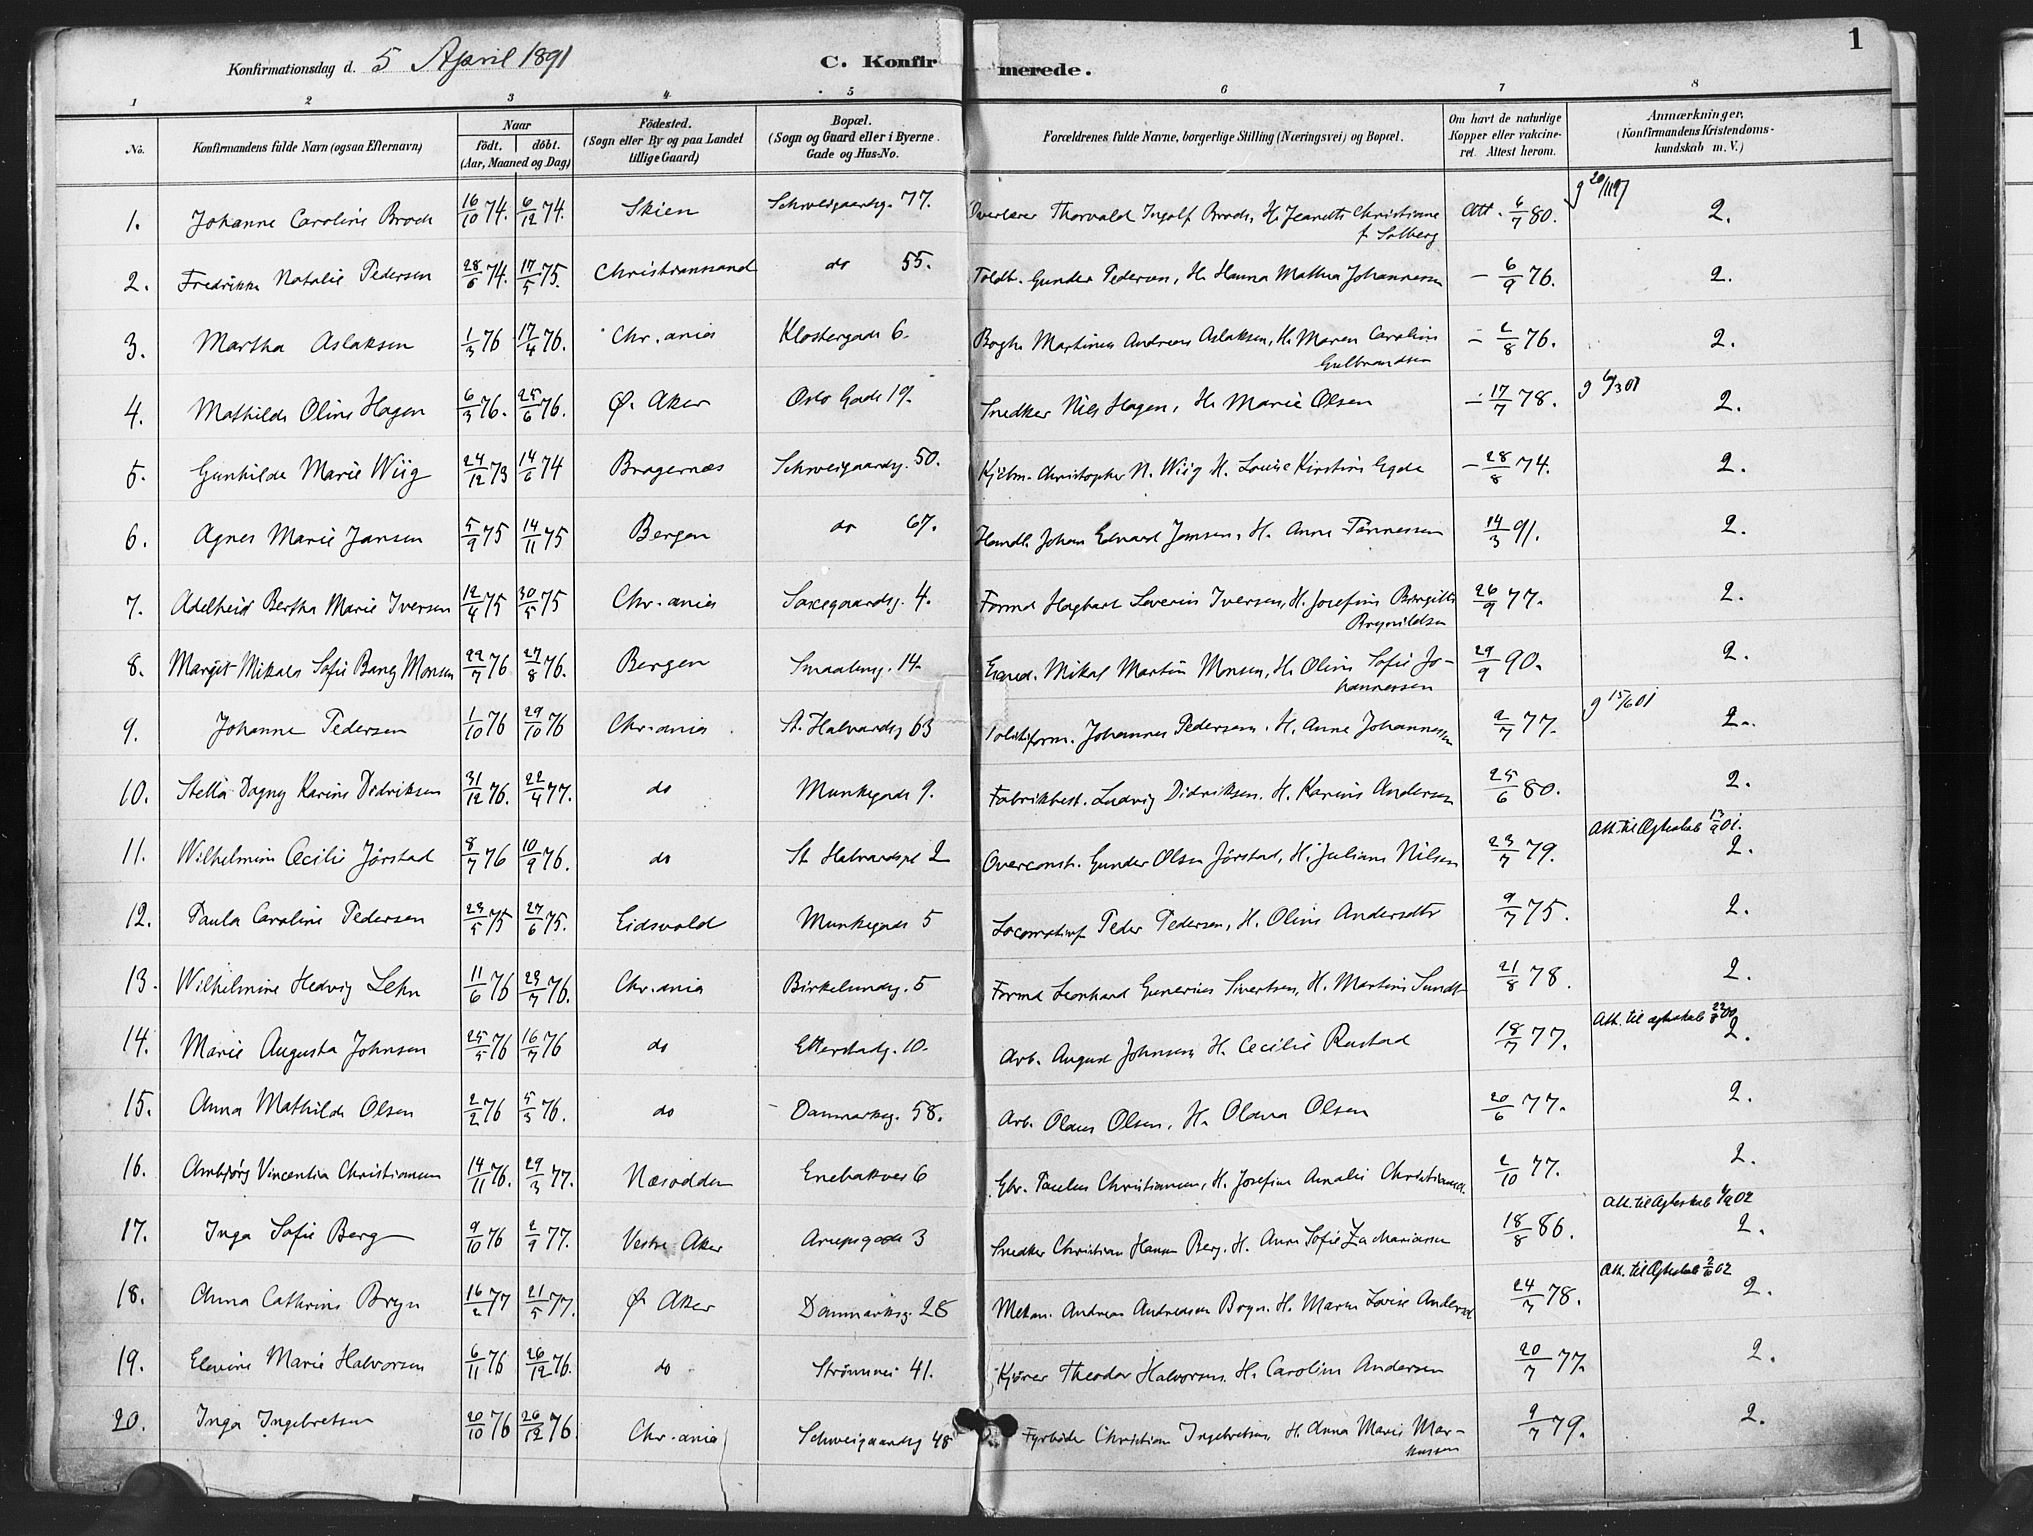 1
Konfirmationsdag d. 5 April 1891 C. Konfirmerede.
1 2 3 4 5 6 7 8
No. Konfirmandens fulde Navn (ogsaa Efternavn)
Naar
født. døbt.
(Aar, Maaned og Dag)
Fødested.
(Sogn eller By og paa Landet
tillige Gaard)
Bopæl.
(Sogn og Gaard eller i Byerne
Gade og Hus-No.
Forældrenes fulde Navne, borgerlige Stilling (Næringsvei) og Bopæl.
Om havt de naturlige
Kopper eller vakcine-
ret. Attest herom.
Anmærkninger.
(Konfirmandens Kristendoms-
kundskab m. V.)
1. Johanne Caroline Broch 16/10 74. 6/12 74. Skien Schweigaardsg. 77. Overlærer Thorvald Ingolf Broch, H. Jeanette Christiane Att. 6/7 80. 2.
f. Solberg
2. Fredrikke Natalie Pedersen 28/6 74. 17/5 75. Christianssand do 55. Toldb. Gunder Pedersen, H. Hanna Mathea Johannessen – 6/9 76. 2.
3. Martha Aslaksen 1/3 76 17/4 76. Chr.ania Klostergade 6. Bogh. Martinus Andreas Aslaksen, H. Maren Caroline – 2/8 76. 2.
Gulbrandsen
4. Mathilde Oline Hagen 6/3 76. 25/6 76. Ø. Aker Oslo Gade 19. Snedker Nils Hagen, H. Marie Olsen – 17/7 78. 2.
5. Gunhilde Marie Wiig 24/12 73 14/6 74 Bragernæs Schweigaardsg. 50. Kjøbm. Christopher N. Wiig H. Louise Kirstine Egde – 28/8 74. 2.
6. Agnes Marie Jansen 5/9 75 14/11 75 Bergen do 67. Handl. Johan Edvard Jansen, H. Anne Tønnessen 14/3 91. 2.
7. Adelheid Bertha Marie Iversen 12/4 75 30/5 75 Chr.ania Saxegaardsg. 4. Formd Hagbart Severin Iversen, H. Josefine Birgitte 26/9 77. 2.
Brynildsen
8. Margit Mikala Sofie Bang Monsen 22/7 76 27/8 76. Bergen Smaaleng. 14. Mikal Martin Monsen, H. Oline Sofie Jo- 29/9 90. 2.
hannessen
g 15/6 01
9. Johanne Pedersen 1/10 76 29/10 76 Chr.ania St. Halvardsg 63 Politiform. Johannes Pedersen. H. Anne Johannessen 2/7 77. 2.
10. Stella Dagny Karine Didriksen 31/12 76. 22/4 77. do Munkegade 9. Fabrikbest. Ludvig Didriksen. H. Karine Andersen 25/6 80. 2.
Att. til Ægteskab 13/9 01.
11. Wilhelmine Cecilie Jørstad 8/7 76 10/9 76. do St. Halvardspl 2 Overconst. Gunder Olsen Jørstad, H. Juliane Nilsen 23/7 79. 2.
12. Paula Caroline Pedersen 23/5 75 27/6 75. Eidsvold Munkegade 5 Locomotivf Peder Pedersen, H. Oline Andersdtr 9/7 75. 2.
13. Wilhelmine Hedvig Lehn 11/6 76 23/7 76. Chr.ania Birkelundg. 5 Formd Leonhard Gunerius Sivertsen, H. Martine Sundt 21/8 78. 2.
Att. til ægteskab
14. Marie Augusta Johnsen 25/5 76 16/7 76 do Etterstadg. 10. Arb. August Johnsen, H. Cecilie Rustad 18/7 77. 2.
15. Anna Mathilde Olsen 2/2 76 5/3 76. do Danmarksg. 58. Arb. Olaus Olsen, H. Olava Olsen 20/6 77. 2.
16. Ambjørg Vincentia Christiansen 14/11 76. 29/3 77. Næsodden Enebakvei 6 Gbr. Paulus Christiansen, H. Josefine Amalie Christiansd. 2/10 77. 2.
Att. til Ægteskab
17. Inga Sofie Berg 9/10 76 2/9 77. Vestre Aker Arupsgade 3 Snedker Christian Hansen Berg. H. Anne Sofie Zachariasen 18/8 86. 2.
Att. til Ægteskab 2/6 02
18. Anna Cathrine Bryn 16/2 77 21/5 77. Ø. Aker Danmarksg. 28 Mekan. Andreas Andreassen Bryn. H. Maren Lovise Andersd 24/7 78. 2.
19. Elevine Marie Halvorsen 6/11 76 26/12 76. do Strømsvei 41. Kjører Theodor Halvorsen. H. Caroline Andersen 20/7 77. 2.
20. Inga Ingebretsen 20/10 76 26/12 76. Chr.ania Schweigaardsg 48 Fyrbøder Christian Ingebretsen, H. Anna Marie Mar- 9/7 79. 2.
kussen